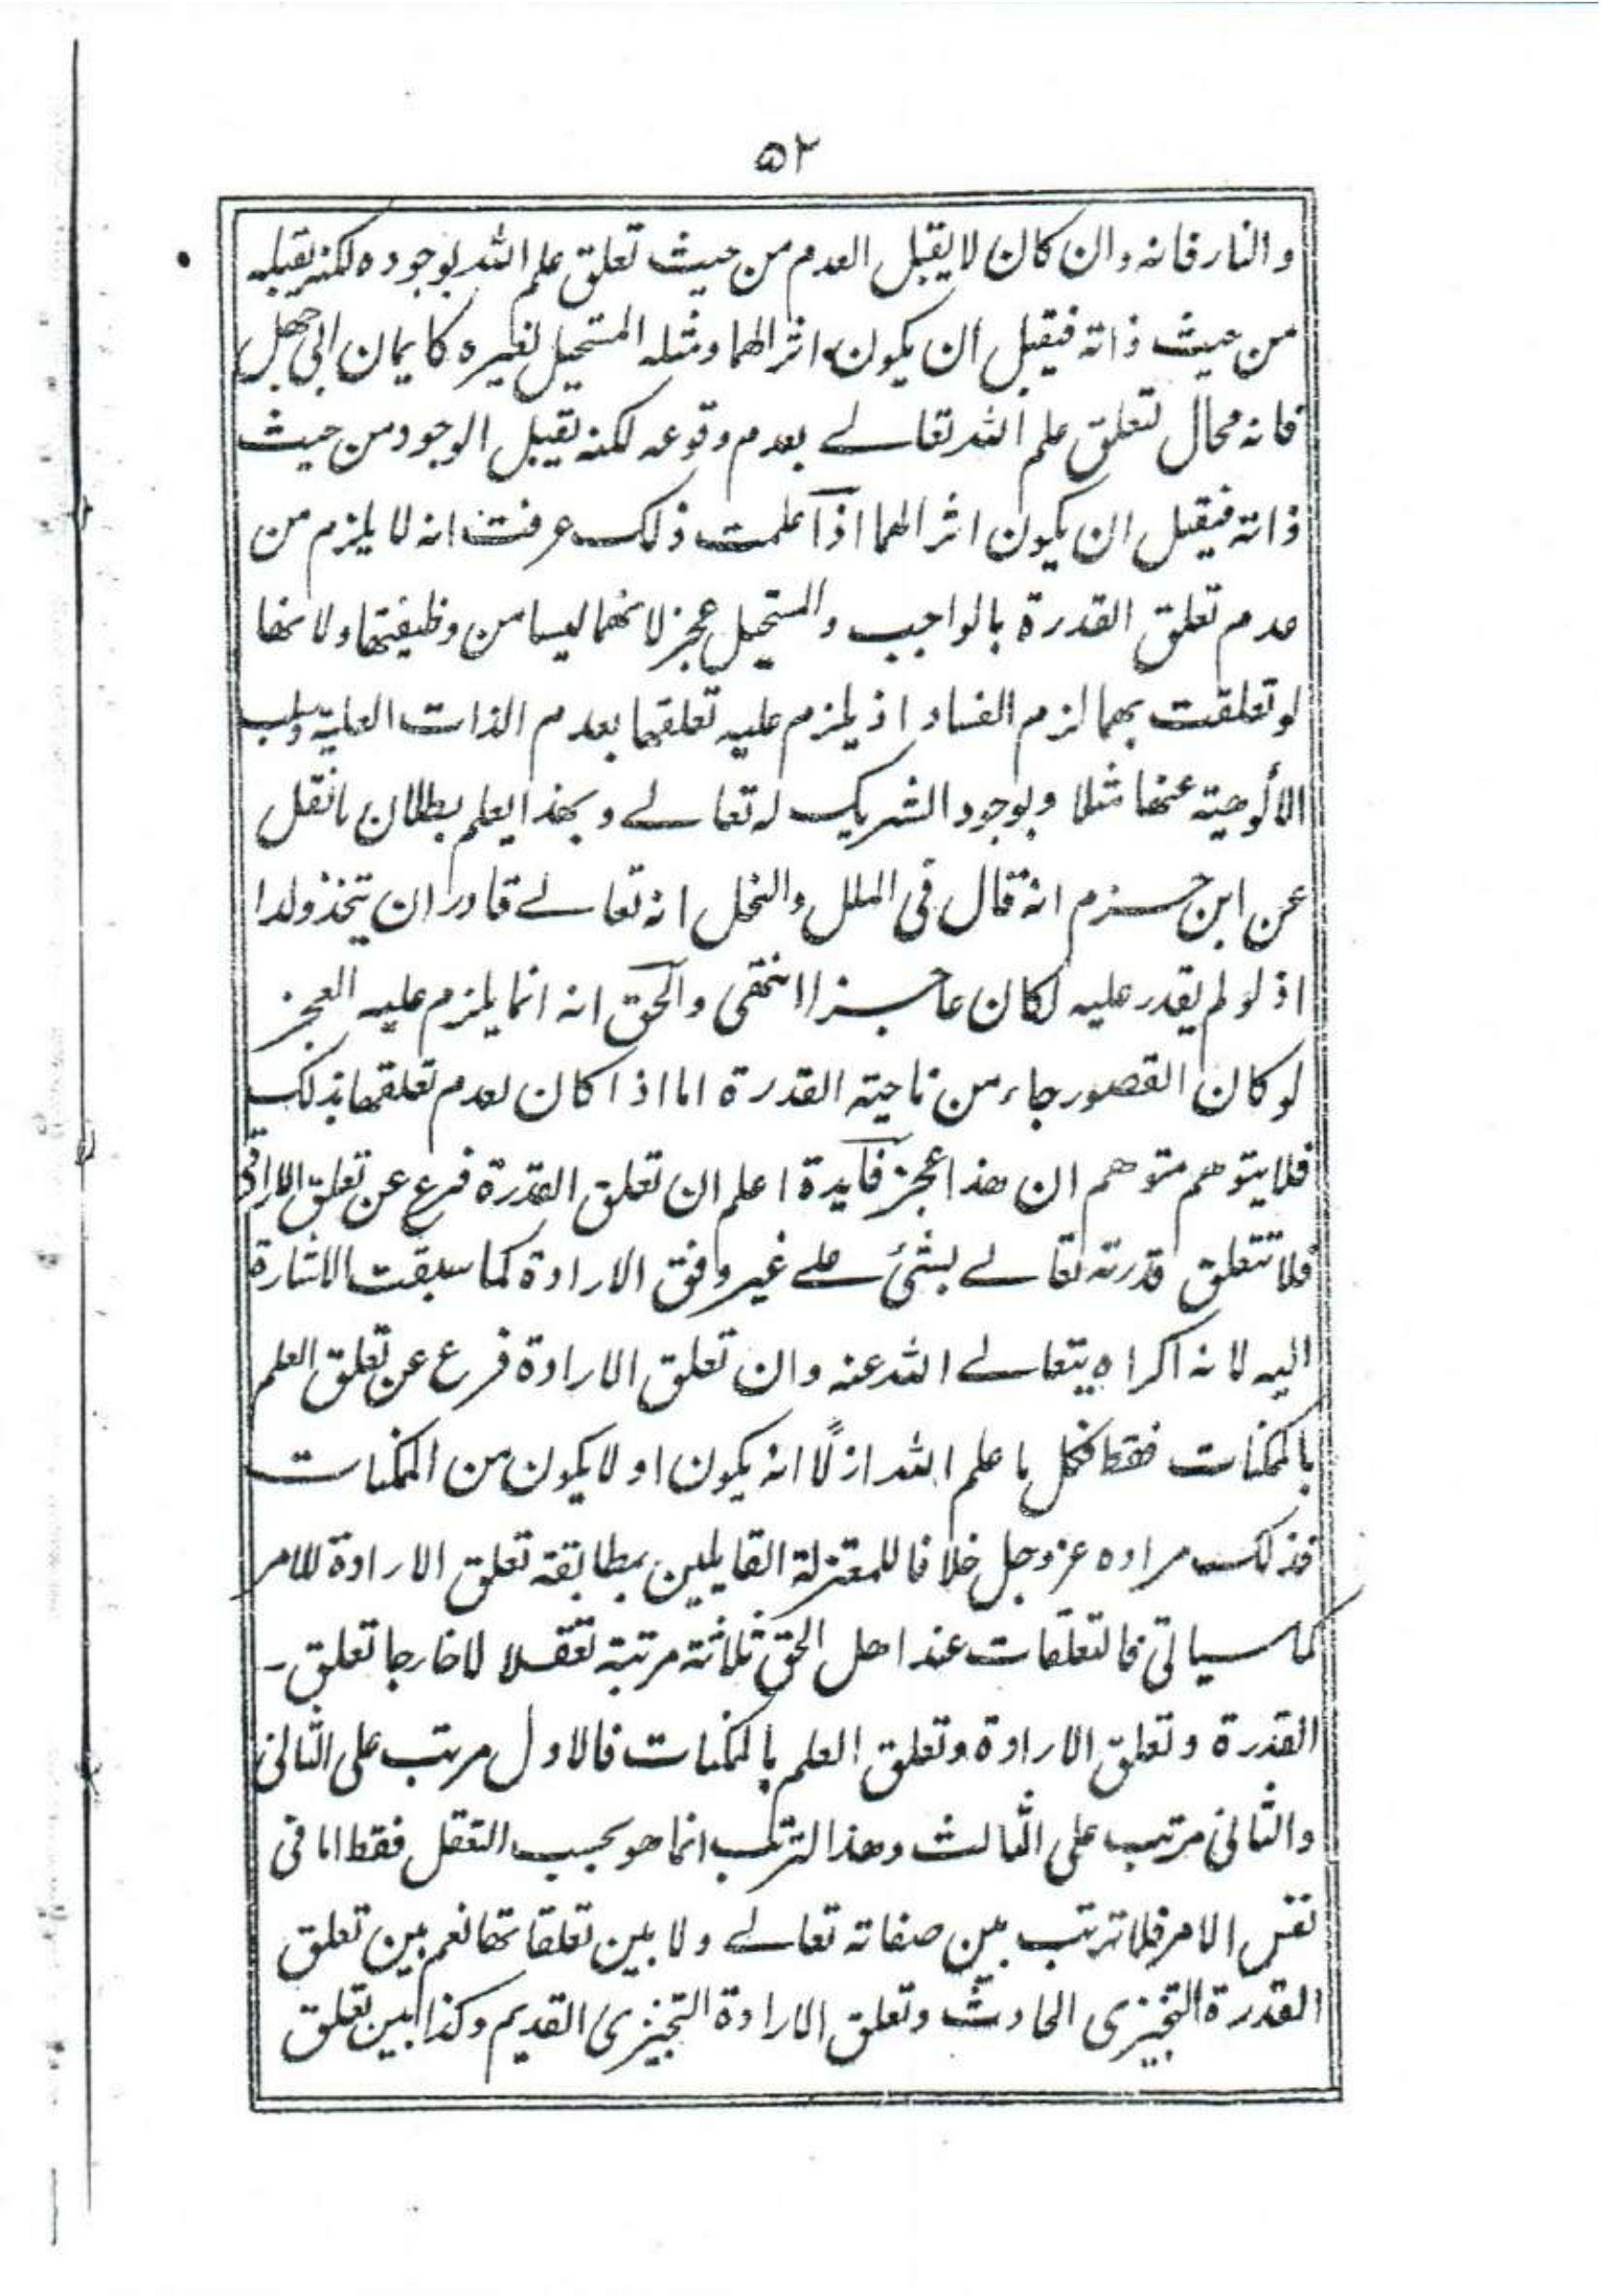 ٥٢
والنار فانه وان كان لا يقبل العدم من حيث تعلق علم الله بوجوده لكنه يقبله
من حيث ذاته فيقبل أن يكون اثرا لهما ومثله المستحيل لغيره كايمان ابي جهل
فانه محال لتعلق علم الله تعالے بعدم وقوعه لكنه يقبل الوجود من حيث
ذاته فيقبل ان يكون اثرا لهما اذا علمت ذلك عرفت انه لا يلزم من
عدم تعلق القدرة بالواجب والمستحيل عجز لانهما ليسا من وظيفتها ولانها
لو تعلقت بهما لزم الفساد اذ يلزم عليه تعلقها بعدم الذات العلية وسلب
الألوهية عنها مثلا وبوجود الشريك له تعالے وبهذا يعلم بطلان ما نقل
عن ابن حزم انه قال فى الملل والنحل انه تعالے قادر ان يتخذ ولدا
اذ لو لم يقدر عليه لكان عاجزا انتهى والحق انه انما يلزم عليه العجز
لو كان القصور جاء من ناحية القدرة اما اذا كان لعدم تعلقها بذلك
فلا يتوهم متوهم ان هذا عجز فآيدة اعلم ان تعلق القدرة فرع عن تعلق الارادة
فلا تتعلق قدرته تعالے بشئ علے غير وفق الارادة كما سبقت الاشارة
اليه لانه اكراه يتعالے الله عنه وان تعلق الارادة فرع عن تعلق العلم
بالممكنات فقط فكل ما علم الله ازلًا انه يكون او لا يكون من الممكنات
فذلك مراده عز وجل خلافا للمعتزلة القايلين بمطابقة تعلق الارادة للامر
كما سياتى فالتعلقات عند اهل الحق ثلاثة مرتبة تعقلا لا خارجا تعلق
القدرة وتعلق الارادة وتعلق العلم بالممكنات فالاول مرتب على الثانى
والثانى مرتب على الثالث وهذا الترتب انما هو بحسب التعقل فقط اما فى
نفس الامر فلا ترتب بين صفاته تعالے ولا بين تعلقاتها نعم بين تعلق
القدرة التنجيزى الحادث وتعلق الارادة التنجيزى القديم وكذا بين تعلق